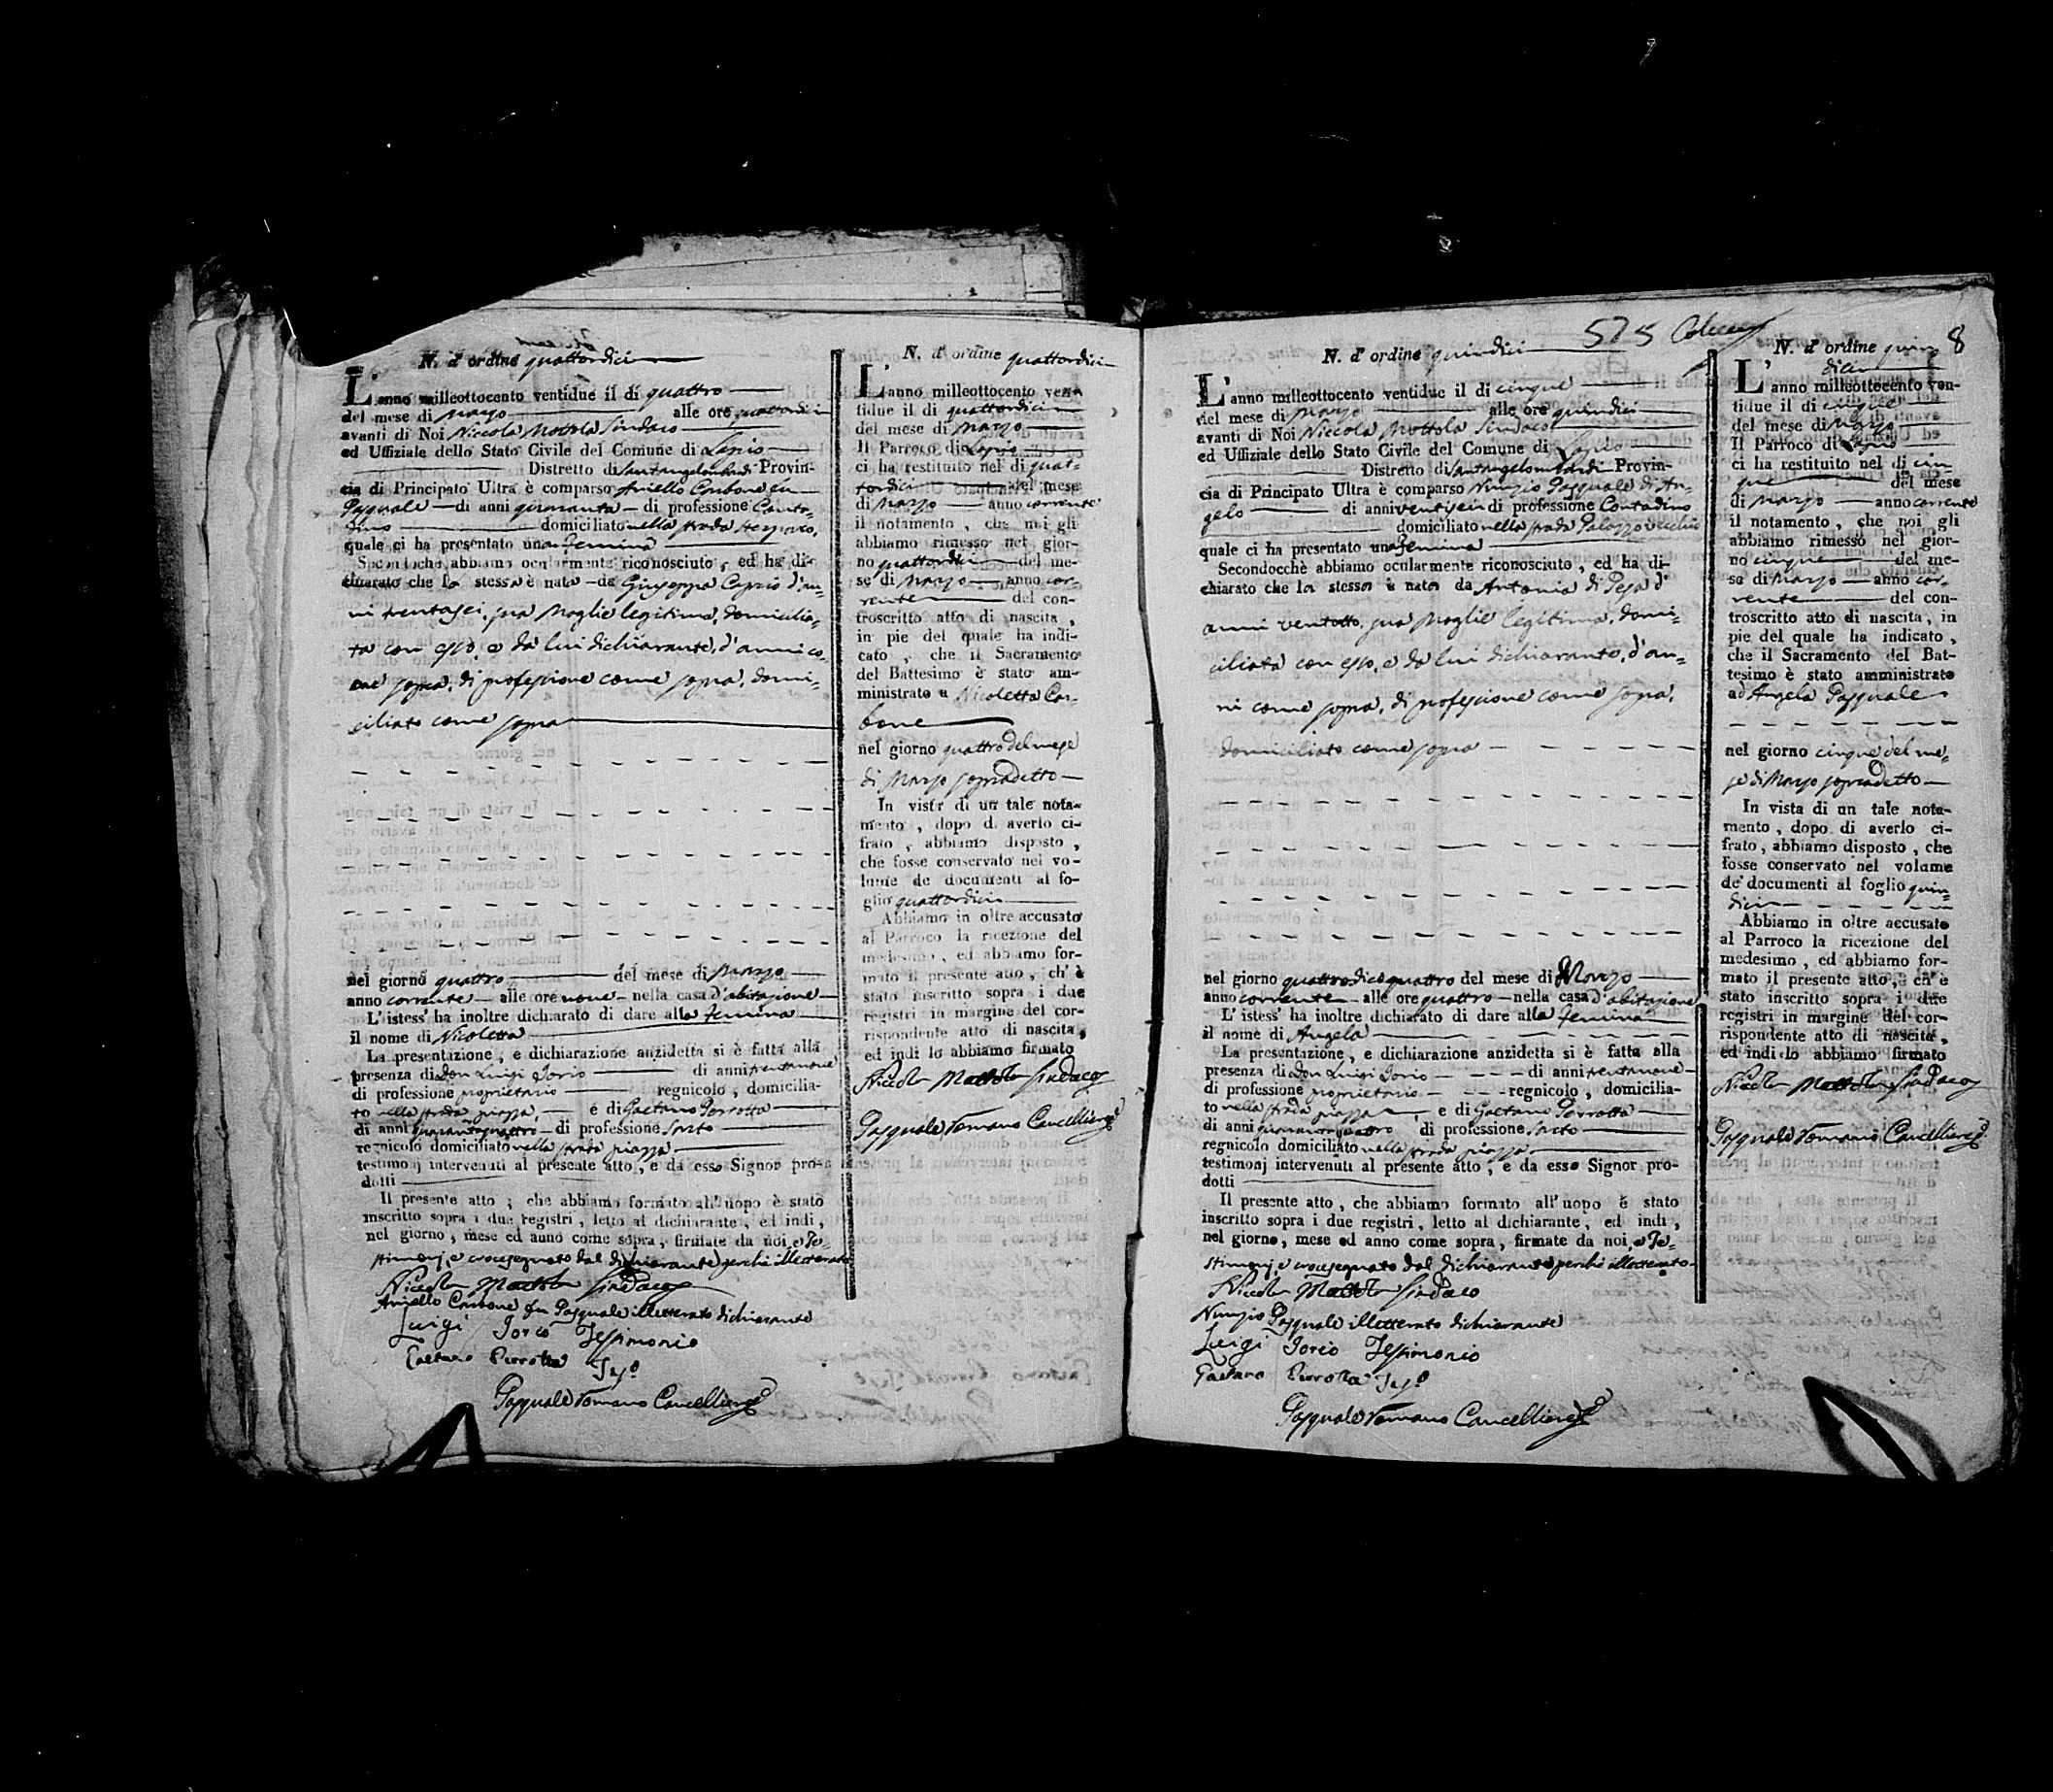 N. d' ordine quattordici
L'anno milleottocento ventidue il dì quattro
del mese di Marzo alle ore quattordici
avanti di Noi Niccola Mottola Sindaco
ed Uffiziale dello Stato Civile del Comune di Lapio
Distretto di Santangelolombardi Provin-
cia di Principato Ultra è comparso Aniello Carbone fu
Pasquale di anni quaranta di professione Conta-
dino domiciliato nella strada
quale ci ha presentato una Femina
Secondochè abbiamo ocularmente riconosciuto, ed ha di-
chiarato che la stessa è nata da Giuseppa Caprio d'an-
ni trentasei, sua Moglie legitima, domicilia-
ta con esso, e da lui dichiarante, d'anni co-
me sopra, di professione come sopra, domi-
ciliato come sopra
nel giorno quattro del mese di Marzo
anno corrente alle ore nove nella casa d'abitazione
L'istess' ha inoltre dichiarato di dare alla Femina
il nome di Nicoletta
La presentazione, e dichiarazione anzidetta si è fatta alla
presenza di Don Luigi Iorio di anni trentanove
di professione proprietario regnicolo, domicilia-
to nella strada piazza e di Gaetano Perrotta
di anni quarantaquattro di professione Sarto
regnicolo domiciliato nella strada piazza
testimonj intervenuti al presente atto, e da esso Signor pro-
dotti
Il presente atto, che abbiamo formato all'uopo è stato
inscritto sopra i due registri, letto al dichiarante, ed indi,
nel giorno, mese ed anno come sopra, firmate da noi, e Te-
stimonj, e crocesegnato dal dichiarante perchè illetterato
Niccola Mottola Sindaco
Aniello Carbone fu Pasquale illetterato dichiarante
Luigi Iorio Testimonio
Gaetano Perrotta Tes.o
Pasquale Romano Cancelliere
N. d' ordine quattordici
L'anno milleottocento ven-
tidue il di quattordici
del mese di Marzo
Il Parroco di Lapio
ci ha restituito nel dì quat-
tordici del mese
di Marzo anno corrente
il notamento, che noi gli
abbiamo rimesso nel gior-
no quattordici del me-
se di Marzo anno cor-
rente del con-
troscritto atto di nascita,
in piè del quale ha indi-
cato, che il Sacramento
del Battesimo è stato am-
ministrato a Nicoletta Car-
bone
nel giorno quattro del mese
di Marzo sopradetto
In vista di un tale nota-
mento, dopo di averlo ci-
frato, abbiamo disposto,
che fosse conservato nel vo-
lume de documenti al fo-
glio quattordici
Abbiamo in oltre accusato
al Parroco la ricezione del
medesimo, ed abbiamo for-
mato il presente atto, ch' è
stato inscritto sopra i due
registri in margine del cor-
rispondente atto di nascita,
ed indi lo abbiamo firmato
Niccola Mottola Sindaco
Pasquale Romano Cancelliere
575
8
N. d' ordine quindici
L'anno milleottocento ventidue il di cinque
del mese di Marzo alle ore quindici
avanti di Noi Niccola Mottola Sindaco
ed Uffiziale dello Stato Civile del Comune di Lapio
Distretto di Santangelolombardi Provin-
cia di Principato Ultra è comparso Nunzio Pasquale di An-
gelo di anni ventisei di professione Contadino
domiciliato nella strada Palazzo vecchio
quale ci ha presentato una Femina
Secondocchè abbiamo ocularmente riconosciuto, ed ha di-
chiarato che la stessa è nata da Antonia di Pesa d'
anni ventotto, sua Moglie legitima, domi-
ciliata con esso, e da lui dichiarante, d'an-
ni come sopra, di professione come sopra,
domiciliato come sopra
nel giorno quattro dico quattro del mese di Marzo
anno corrente alle ore quattro nella casa d'abitazione
L'istess' ha inoltre dichiarato di dare alla Femina
il nome di Angela
La presentazione, e dichiarazione anzidetta si è fatta alla
presenza di Don Luigi Iorio di anni trentanove
di professione proprietario regnicolo, domicilia-
to nella strada piazza e di Gaetano Perrotta
di anni quarantaquattro di professione Sarto
regnicolo domiciliato nella strada piazza
testimonj intervenuti al presente atto, e da esso Signor pro-
dotti
Il presente atto, che abbiamo formato all'uopo è stato
inscritto sopra i due registri, letto al dichiarante, ed indi,
nel giorno, mese ed anno come sopra, firmate da noi, e Te-
stimonj, e crocesegnato dal dichiarante perchè illetterato
Niccola Mottola Sindaco
Nunzio Pasquale illetterato dichiarante
Luigi Iorio Testimonio
Gaetano Perrotta Tes.o
Pasquale Romano Cancelliere
N. d' ordine quin-
dici
L'anno milleottocento ven-
tidue il di cinque
del mese di Marzo
Il Parroco di Lapio
ci ha restituito nel dì cin-
que del mese
di Marzo anno corrente
il notamento, che noi gli
abbiamo rimesso nel gior-
no cinque del me-
se di Marzo anno cor-
rente del con-
troscritto atto di nascita, in
piè del quale ha indicato,
che il Sacramento del Bat-
tesimo è stato amministrato
ad Angela Pasquale
nel giorno cinque del me-
se di Marzo sopradetto
In vista di un tale nota-
mento, dopo di averlo ci-
frato, abbiamo disposto, che
fosse conservato nel volume
de' documenti al foglio quin-
dici
Abbiamo in oltre accusato
al Parroco la ricezione del
medesimo, ed abbiamo for-
mato il presente atto, ch' è
stato inscritto sopra i due
registri in margine del cor-
rispondente atto di nascita,
ed indi lo abbiamo firmato
Niccola Mottola Sindaco
Pasquale Romano Cancelliere